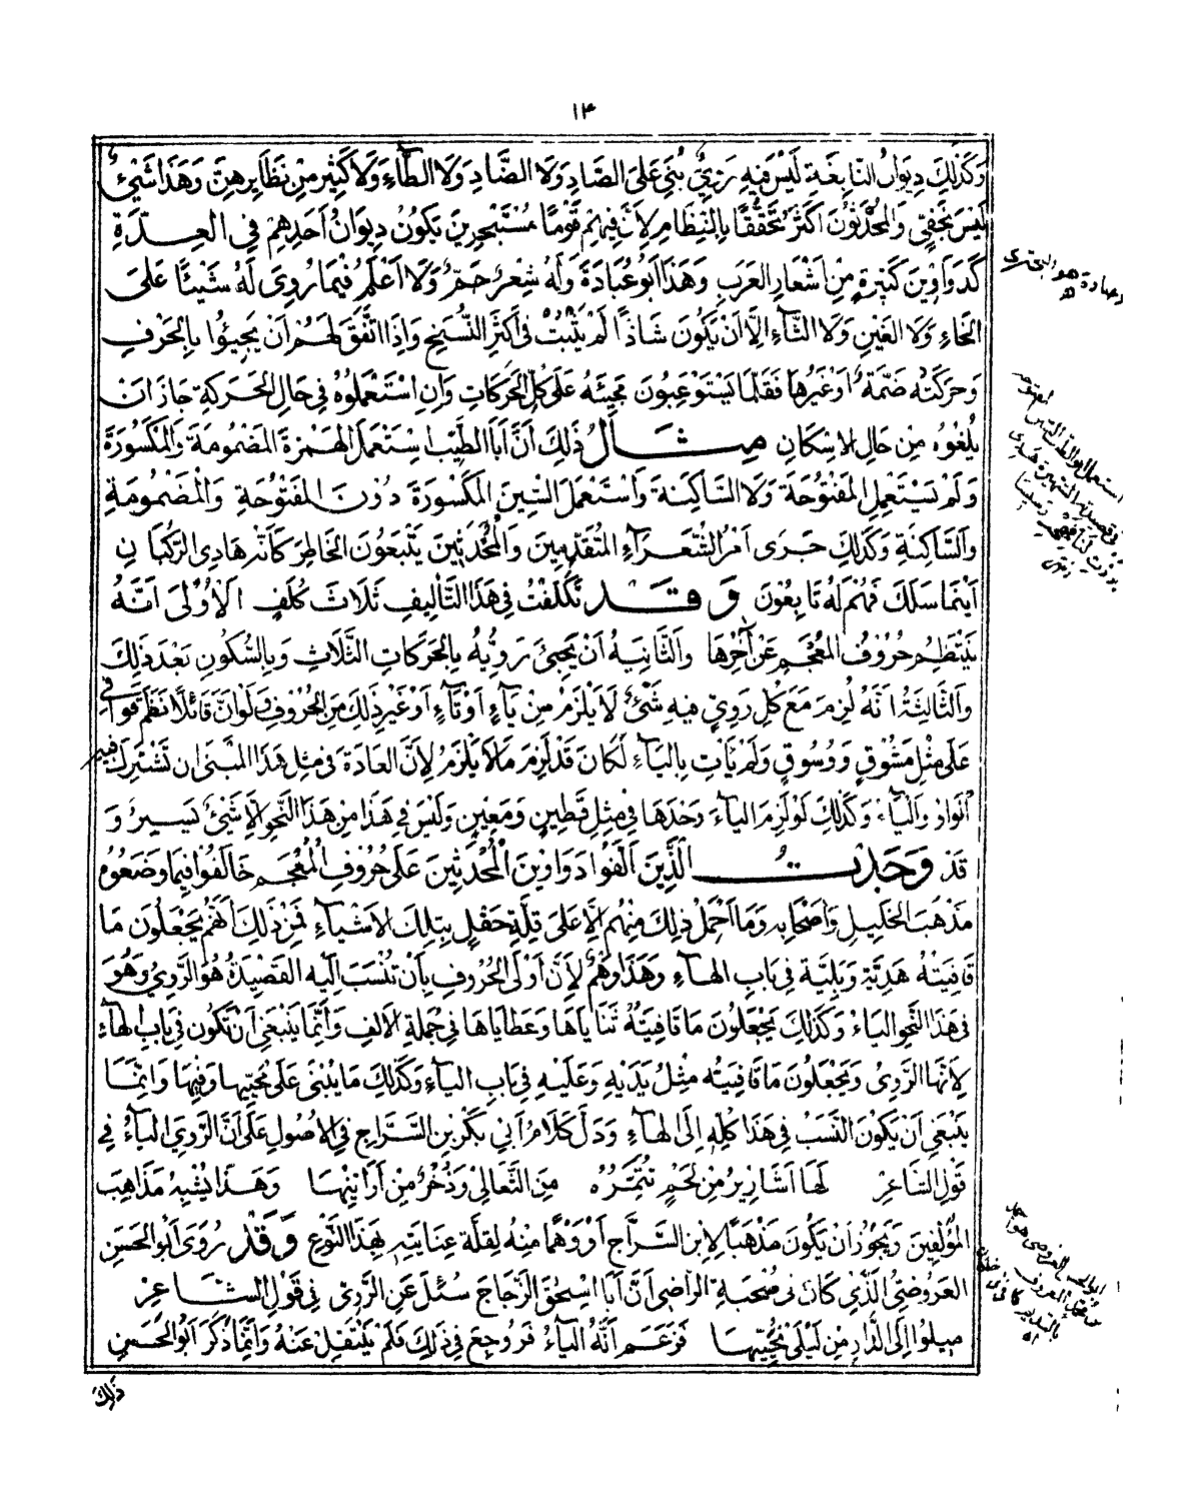 ١٣
وَكَذٰلِكَ دِيوَانُ النَّابِغَةِ لَيْسَ فِيهِ رَوِيٌّ بُنِيَ عَلَى الصَّادِ وَلَا الضَّادِ وَلَا الطَّاءِ وَلَا كَثِيرٍ مِنْ نَظَائِرِهِنَّ وَهَذَا شَيْءٌ
لَيْسَ يَخْفَى وَالْمُحْدَثُونَ أَكْثَرُ تَحَقُّقًا بِالنِّظَامِ لِأَنَّ فِيهِمْ قَوْمًا مُسْتَبْحِرِينَ يَكُونُ دِيوَانُ أَحَدِهِمْ فِي الْعِدَّةِ
كَدَوَاوِينَ كَثِيرَةٍ مِنْ أَشْعَارِ الْعَرَبِ وَهَذَا أَبُو عُبَادَةَ وَلَهُ شِعْرٌ جَمٌّ وَلَا أَعْلَمُ فِيمَا رُوِيَ لَهُ شَيْئًا عَلَى
الْخَاءِ وَلَا الْغَيْنِ وَلَا الثَّاءِ إِلَّا أَنْ يَكُونَ شَاذًّا لَمْ يَثْبُتْ فِي أَكْثَرِ النُّسَخِ وَإِذَا اتَّفَقَ لَهُمْ أَنْ يَجِيئُوا بِالْحَرْفِ
وَحَرَكَتُهُ ضَمَّةٌ أَوْ غَيْرُهَا فَقَلَّمَا يَسْتَوْعِبُونَ مَجِيئَهُ عَلَى كُلِّ الْحَرَكَاتِ وَإِنِ اسْتَعْمَلُوهُ فِي حَالِ الْحَرَكَةِ جَازَ أَنْ
يُلْغُوهُ مِنْ حَالِ الْإِسْكَانِ مِثَالُ ذٰلِكَ أَنَّ أَبَا الطَّيِّبِ اسْتَعْمَلَ الْهَمْزَةَ الْمَضْمُومَةَ وَالْمَكْسُورَةَ
وَلَمْ يَسْتَعْمِلِ الْمَفْتُوحَةَ وَلَا السَّاكِنَةَ وَاسْتَعْمَلَ السِّينَ الْمَكْسُورَةَ دُونَ الْمَفْتُوحَةِ وَالْمَضْمُومَةِ
وَالسَّاكِنَةِ وَكَذٰلِكَ جَرَى أَمْرُ الشُّعَرَاءِ الْمُتَقَدِّمِينَ وَالْمُحْدَثِينَ يَتْبَعُونَ الْخَاطِرَ كَأَنَّهُ هَادِي الرُّكْبَانِ
أَيْنَمَا سَلَكَ فَهُمْ لَهُ تَابِعُونَ وَقَدْ تَكَلَّفْتُ فِي هَذَا التَّأْلِيفِ ثَلَاثَ كُلَفٍ الْأُولَى أَنَّهُ
يَنْتَظِمُ حُرُوفَ الْمُعْجَمِ عَنْ آخِرِهَا وَالثَّانِيَةُ أَنْ يَجِيءَ رَوِيُّهُ بِالْحَرَكَاتِ الثَّلَاثِ وَبِالسُّكُونِ بَعْدَ ذٰلِكَ
وَالثَّالِثَةُ أَنَّهُ لُزِمَ مَعَ كُلِّ رَوِيٍّ فِيهِ شَيْءٌ لَا يَلْزَمُ مِنْ يَاءٍ أَوْ تَاءٍ أَوْ غَيْرِ ذٰلِكَ مِنَ الْحُرُوفِ وَلَوْ أَنَّ قَائِلًا نَظَمَ قَوَافِيَ
عَلَى مِثْلِ مَشُوقٍ وَوُسُوقٍ وَلَمْ يَأْتِ بِالْيَاءِ لَكَانَ قَدْ لَزِمَ مَا لَا يَلْزَمُ لِأَنَّ الْعَادَةَ فِي مِثْلِ هَذَا الْمَبْنَى أَنْ تَشْتَرِكَ فِيهِ
الْوَاوُ وَالْيَاءُ وَكَذٰلِكَ لَوْ لَزِمَ الْيَاءَ وَحْدَهَا فِي مِثْلِ قَطِينٍ وَمَعِينٍ وَلَيْسَ فِي هَذَا مِنْ هَذَا النَّحْوِ إِلَّا شَيْءٌ يَسِيرٌ وَ
قَدْ وَجَدْتُ الَّذِينَ أَلَّفُوا دَوَاوِينَ الْمُحْدَثِينَ عَلَى حُرُوفِ الْمُعْجَمِ خَالَفُوا فِيمَا وَضَعُوهُ
مَذْهَبَ الْخَلِيلِ وَأَصْحَابِهِ وَمَا أَحْمِلُ ذٰلِكَ مِنْهُمْ إِلَّا عَلَى قِلَّةِ حَفْلٍ بِتِلْكَ الْأَشْيَاءِ فَمِنْ ذٰلِكَ أَنَّهُمْ يَجْعَلُونَ مَا
قَافِيَتُهُ هَدِيَّة وَبَلِيَّة فِي بَابِ الْهَاءِ وَهَذَا وَهْمٌ لِأَنَّ أَوْلَى الْحُرُوفِ بِأَنْ تُنْسَبَ إِلَيْهِ الْقَصِيدَةُ هُوَ الرَّوِيُّ وَهُوَ
فِي هَذَا النَّحْوِ الْيَاءُ وَكَذٰلِكَ يَجْعَلُونَ مَا قَافِيَتُهُ ثَنَايَاهَا وَعَطَايَاهَا فِي جُمْلَةِ الْأَلِفِ وَإِنَّمَا يَنْبَغِي أَنْ تَكُونَ فِي بَابِ الْهَاءِ
لِأَنَّهَا الرَّوِيُّ وَيَجْعَلُونَ مَا قَافِيَتُهُ مِثْلُ يَدَيْهِ وَعَلَيْهِ فِي بَابِ الْيَاءِ وَكَذٰلِكَ مَا يُبْنَى عَلَى مُحِبِّيهَا وَفِيهَا وَإِنَّمَا
يَنْبَغِي أَنْ يَكُونَ النَّسَبُ فِي هَذَا كُلِّهِ إِلَى الْهَاءِ وَدَلَّ كَلَامُ أَبِي بَكْرِ بْنِ السَّرَّاجِ فِي الْأُصُولِ عَلَى أَنَّ الرَّوِيَّ الْيَاءُ فِي
قَوْلِ الشَّاعِرِ لَهَا أَشَارِيرُ مِنْ لَحْمٍ تُتَمِّرُهُ مِنَ الثَّعَالِي وَذُخْرٌ مِنْ أَرَانِيهَا وَهَذَا يُشْبِهُ مَذَاهِبَ
الْمُؤَلِّفِينَ وَيَجُوزُ أَنْ يَكُونَ مَذْهَبًا لِابْنِ السَّرَّاجِ أَوْ وَهْمًا مِنْهُ لِقِلَّةِ عِنَايَتِهِ بِهَذَا النَّوْعِ وَقَدْ رَوَى أَبُو الْحَسَنِ
الْعَرُوضِيُّ الَّذِي كَانَ فِي صُحْبَةِ الرَّاضِي أَنَّ أَبَا إِسْحٰقَ الزَّجَّاجَ سُئِلَ عَنِ الرَّوِيِّ فِي قَوْلِ الشَّاعِرِ
مِيلُوا إِلَى الدَّارِ مِنْ لَيْلَى نُحَيِّيهَا فَزَعَمَ أَنَّهُ الْيَاءُ فَرُوجِعَ فِي ذٰلِكَ فَلَمْ يَنْتَقِلْ عَنْهُ وَإِنَّمَا ذَكَرَ أَبُو الْحَسَنِ
ذٰلِكَ
هو البحتري